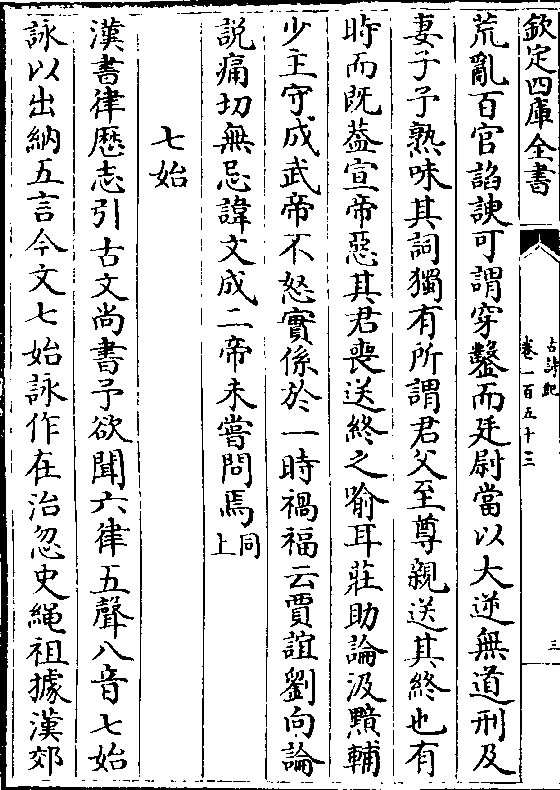 欽定四庫全書
古詩紀
卷一百五十三
三
荒亂百官諂諛可謂穿鑿而廷尉當以大逆無道刑及
妻子予熟味其詞獨有所謂君父至尊親送其終也有
時而既蓋宣帝惡其君喪送終之喻耳莊助論汲黯輔
少主守成武帝不怒實係於一時禍福云賈誼劉向論
說痛切無忌諱文成二帝未嘗問焉同上
七始
漢書律歷志引古文尚書予欲聞六律五聲八音七始
詠以出納五言今文七始詠作在治忽史繩祖據漢郊